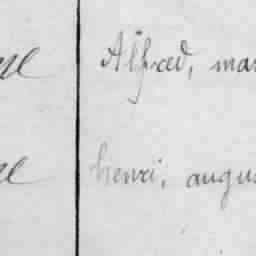 Alfred, mar
henri, augu